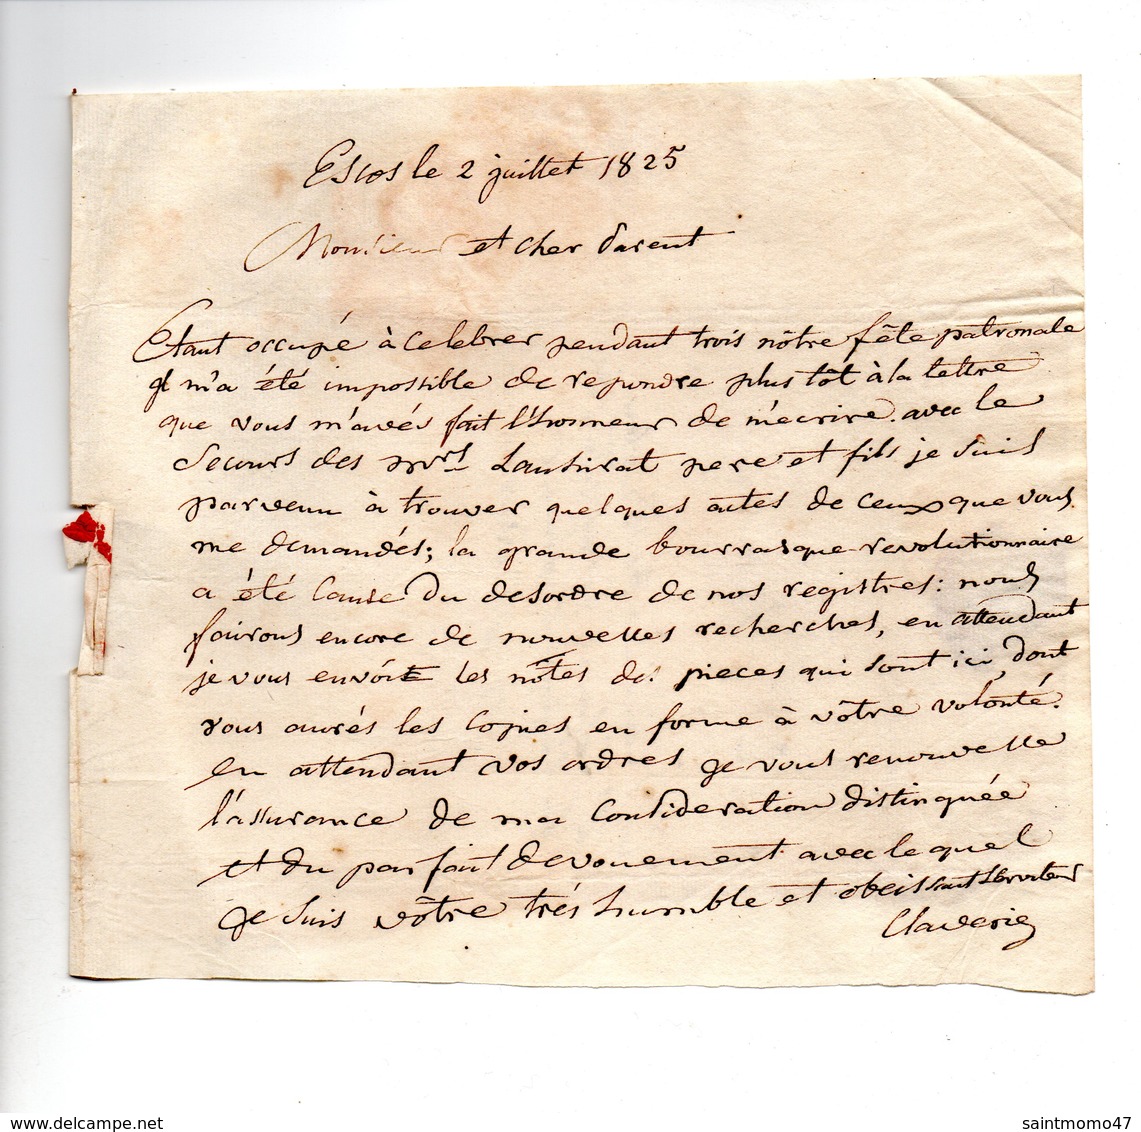 Escos le 2 juillet 1825
Monsieur et cher parent
Etant occupé à celebrer pendant trois nôtre fête patronale
il m'a été impossible de repondre plus tôt à la lettre
que vous m'avés fait l'honneur de m'ecrire. avec le
secours des mrs Lauhirat pere et fils je suis
parvenu à trouver quelques actes de ceux que vous
me demandés; la grande bourrasque revolutionnaire
a été cause du desordre de nos registres: nous
fairons encore de nouvelles recherches, en attendant
je vous envoie les nôtes des pieces qui sont ici, dont
vous aurés les copies en forme à vôtre volonté.
en attendant vos ordres je vous renouvelle
l'assurance de ma consideration distinquée
et du parfait devouement avec lequel
je suis vôtre trés humble et obeissant serviteur
Claverie
saintmomo47
www.delcampe.net